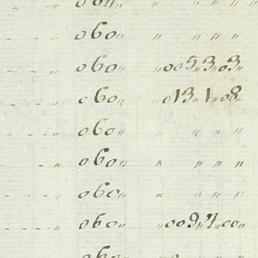 „ 060„ „ „ „ „
„ 060„ „ „ „ „
„ 060„ „005„3„03„
„ 060„ „013„1„08„
„ 060„ „ „ „ „
„ 060„ „ „ „ „
„ 060„ „ „ „ „
„ 060„ „009„4„00„
„ 060„ „ „ „ „